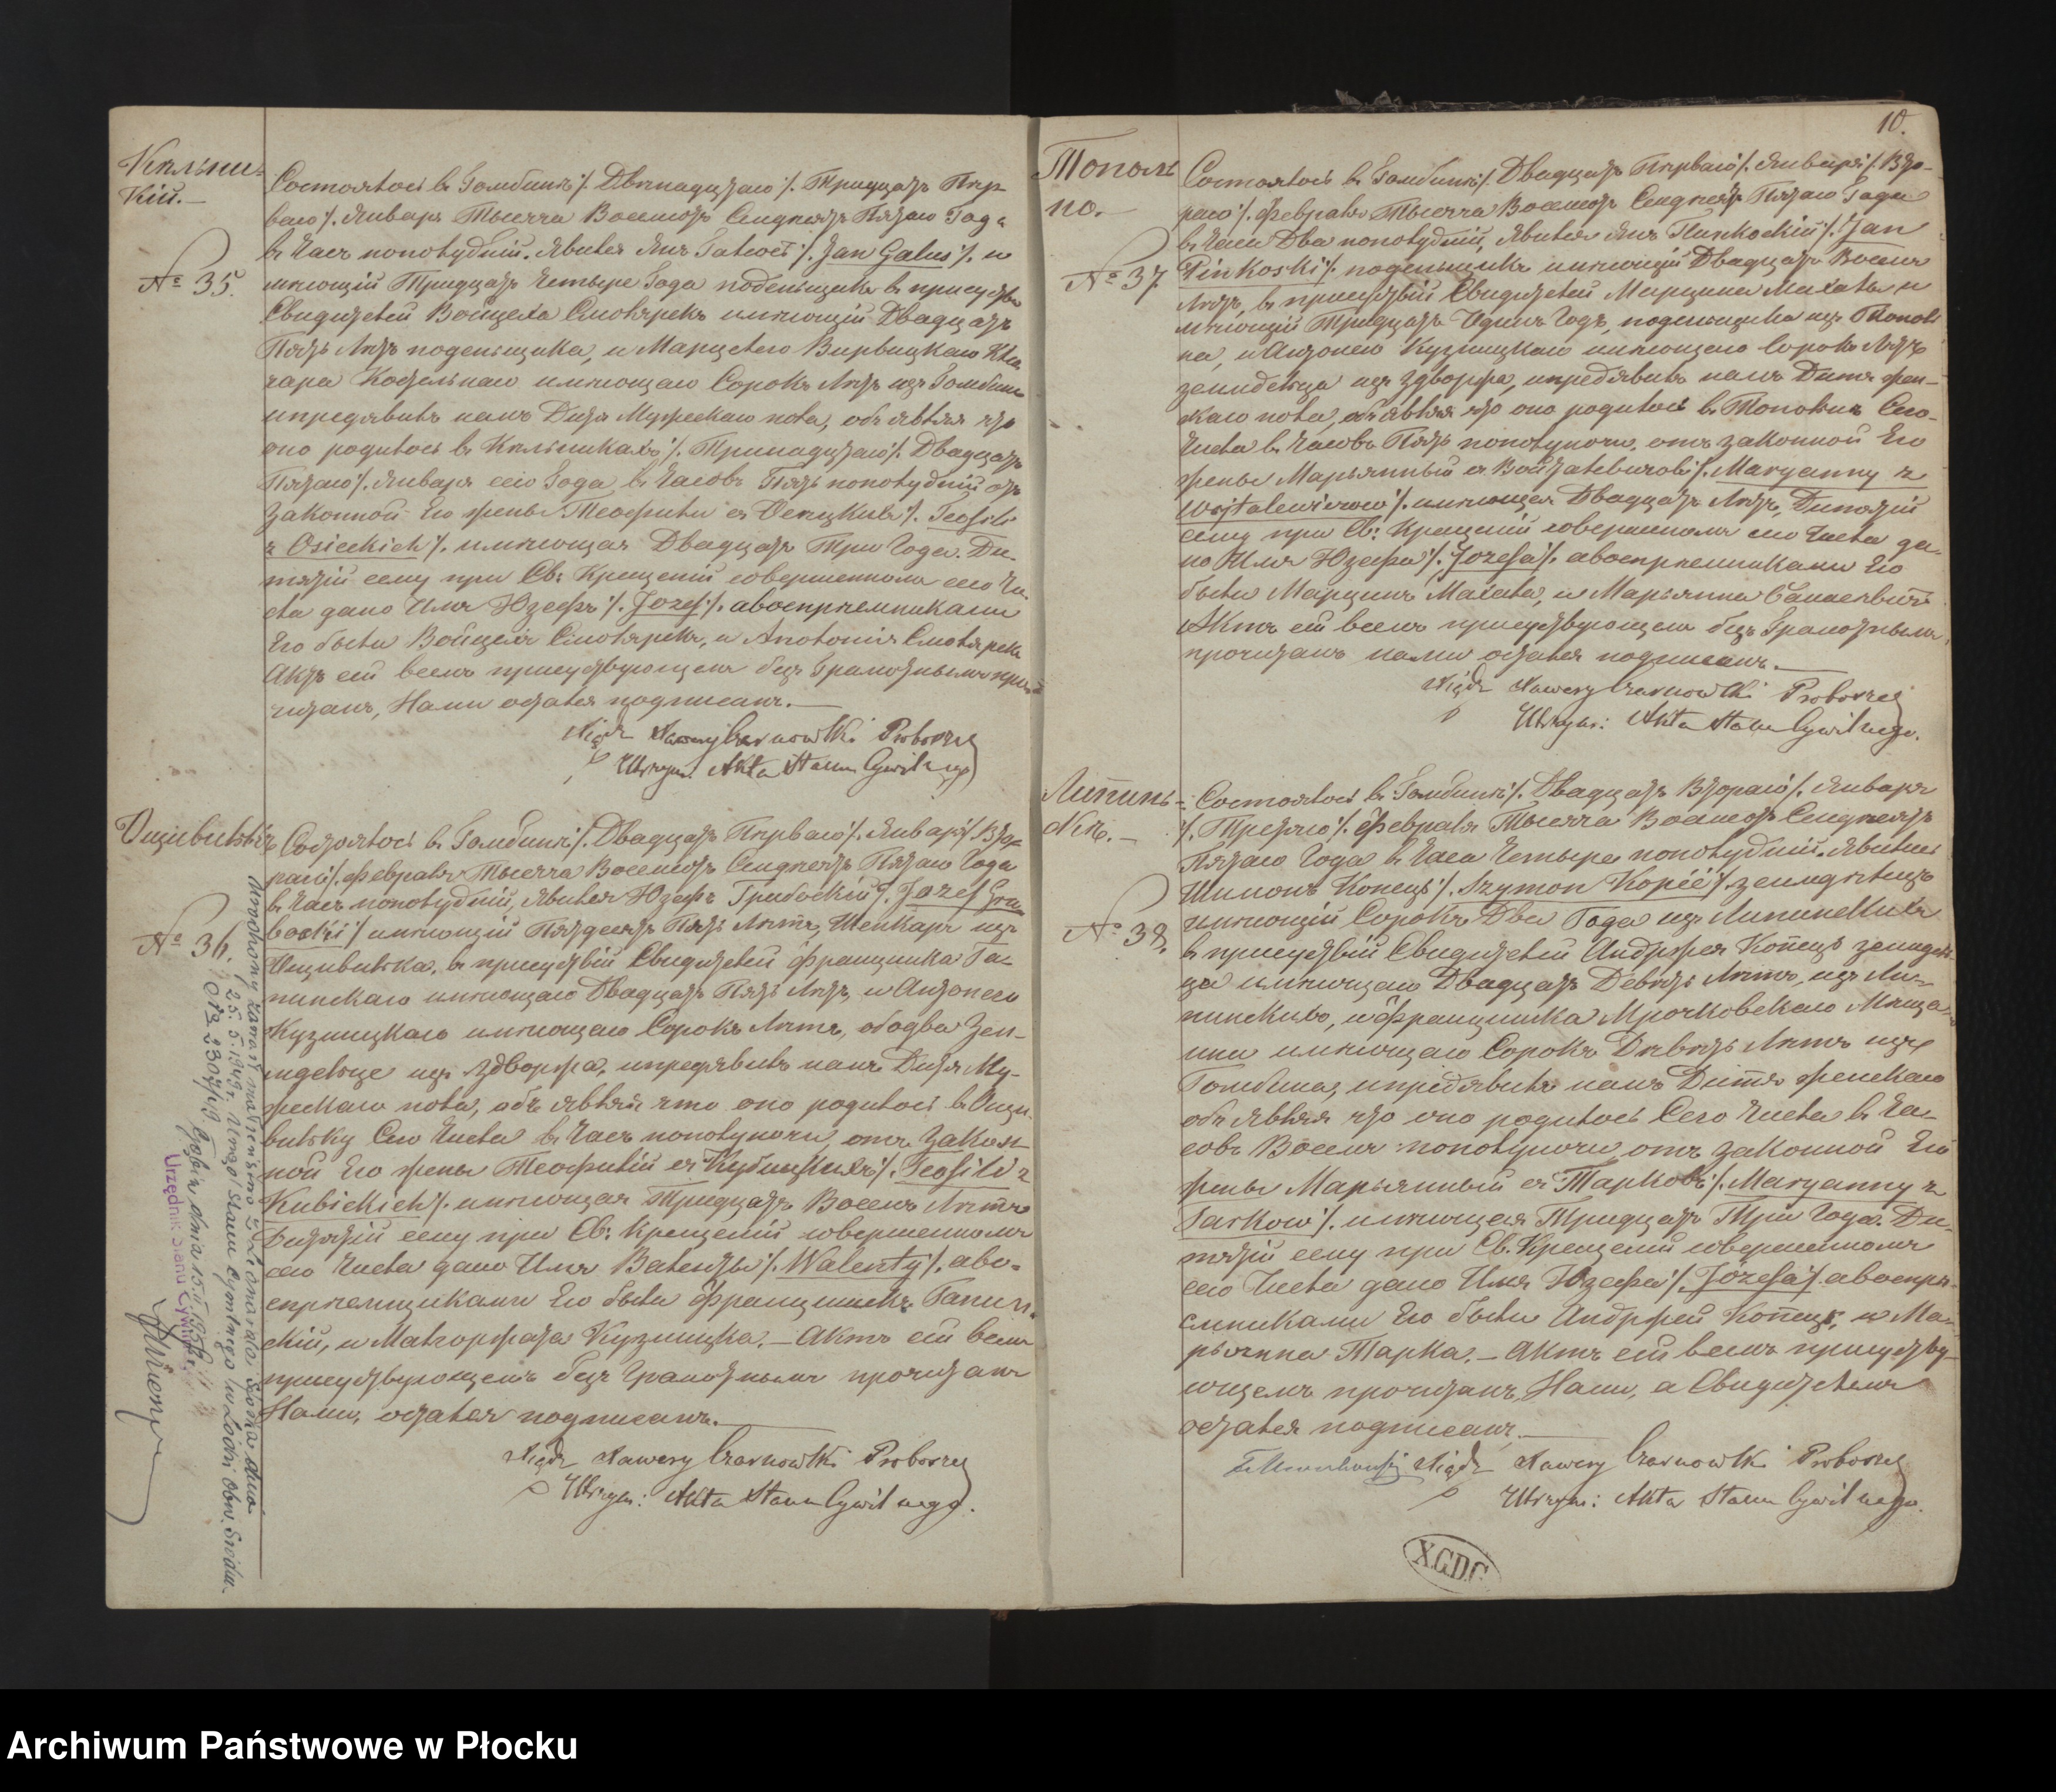 Кѣльни-
кій.
№ 35.
Состоялось въ Гомбинѣ /. Двѣнадцатаго /. Тридцать Пер-
ваго /. Января Тысяча Восемсотъ Семдесятъ Пятаго Года
въ Часъ пополудніи. Явился Янъ Галюсъ /. Jan Galus /. и
мѣющій Тридцать Четыре Года поденьщикъ въ присутствіи
Свидѣтелей Войцеха Смолярекъ имѣющій Двадцать
Пять Лѣтъ поденьщика, и Марцелего
имѣющаго Сорокъ Лѣтъ изъ Гомбина
ипредявилъ намъ Дитя Мужескаго пола, объявляя что
оно родилось въ Кѣльникахъ /. Тринадцатаго /. Двадцать
Пятаго /. Января сего Года въ Часовъ Пять пополудніи отъ
Законной Его жены Теофили съ Осецкихъ /. Teofili
z Osieckich /. имѣющая Двадцать Три Года. Ди-
тятій сему при Св: Крещеніи совершенномъ сего Чи-
сла дано Имя Юзефъ /. Jozef /. авоспрѣемниками
Его были Войцехъ Смолярекъ, и Антонія Смолярекъ
Актъ сей всемъ присутствующемъ безъ Грамотнымъ про-
читанъ, Нами остался подписанъ.
Xiądz Xawery Czarnowski Proboszcz
Utrzym: Akta Stanu Cywilnego
№ 36.
Состоялось въ Гомбинѣ /. Двадцать Перваго /. Января /. Вто-
раго /. Февраля Тысяча Восемсотъ Семдесятъ Пятаго Года
въ Часъ пополудніи, Явился Юзефъ Грабоскій /. Jozef Gra-
boski / имѣющій Пятдесятъ Пять Лѣтъ, Шенкаръ изъ
въ присутствіи Свидѣтелей Францишка Га-
пинскаго имѣющаго Двадцать Пять Лѣтъ, и Антонего
Кузмицкаго имѣющаго Сорокъ Лѣтъ, ободва Зем-
ледельце изъ Здворжа, ипредявилъ намъ Дитя Му-
жескаго пола, объявляя что оно родилось въ
Сего Числа въ Часъ пополуночи, отъ Закон-
ной Его жены Теофилій съ Кубицкихъ /. Teofili z
Kubickich /. имѣющая Тридцать Восемъ Лѣтъ
Дитятій сему при Св: Крещеніи совершенномъ
сего Числа дано Имя Валентый /. Walenty /. аво-
спрѣемщиками Его были Францишекъ Гапин-
скій, и Малгоржата Кузмицка. — Актъ сей всемъ
присутствующемъ безъ Грамотнымъ прочитанъ
Нами, остался подписанъ.
Xiądz Xawery Czarnowski Proboszcz
Utrzym: Akta Stanu Cywilnego.
Urzędnik Stanu Cywilnego
10.
Тополь-
но.
№ 37.
Состоялось въ Гомбинѣ /. Двадцать Перваго /. Января /. Вто-
раго /. Февраля Тысяча Восемсотъ Семдесятъ Пятаго Года
въ Часа Два пополудніи, Явился Янъ Пинкоскій /. Jan
Pinkoski /. поденьщикъ имѣющій Двадцать Восемъ
Лѣтъ, въ присутствіи Свидѣтелей Марцина Махала и
мѣющій Тридцать Одинъ Годъ, поденьщика изъ Тополь-
на, и Антонего Кузмицкаго имѣющаго Сорокъ Лѣтъ
земледельца изъ Здворжа, ипредявилъ намъ Дитя жен-
скаго пола, объявляя что оно родилось въ Топольнѣ Сего
Числа въ Часовъ Пять пополуночи, отъ законной Его
жены Марьянный съ Войталевичовъ /. Maryanny z
Wojtalewiczow /. имѣющая Двадцать Лѣтъ, Дитятій
сему при Св: Крещеніи совершенномъ сего Числа да-
но Имя Юзефа /. Jozefa /. авоспрѣемниками Его
были Марцинъ Махала, и Марьянна
Актъ сей всемъ присутствующемъ безъ Грамотнымъ
прочитанъ нами остался подписанъ.
Xiądz Xawery Czarnowski Proboszcz
Utrzym: Akta Stanu Cywilnego.
Липинь-
ске.
№ 38.
Состоялось въ Гомбинѣ /. Двадцать Втораго /. Января
/. Третяго /. Февраля Тысяча Восемсотъ Семдесятъ
Пятаго Года въ Часа Четыре пополудніи. Явился
Шимонъ Копець /. Szymon Kopéć /. земледѣлецъ
имѣющій Сорокъ Два Года изъ Липинскихъ
въ присутствіи Свидѣтелей Андржея Копецъ земледѣль-
ца имѣющаго Двадцать Девять Лѣтъ, изъ Ли-
пинскихъ, и Францишка Мрочковскаго Мѣща-
нина имѣющаго Сорокъ Девять Лѣтъ изъ
Гомбина, ипредявилъ намъ Дитя женскаго
объявляя что оно родилось Сего Числа въ Ча-
совъ Восемъ пополуночи, отъ законной Его
жены Марьянный съ Тарковъ /. Maryanny z
Tarkow /. имѣющая Тридцать Три Года. Ди-
тятій сему при Св. Крещеніи совершенномъ
сего Числа дано Имя Юзефа /. Józefa /. авоспрѣ-
емниками Его были Андржей Копецъ, и Ма-
рьянна Тарка. — Актъ сей всемъ присутству-
ющемъ прочитанъ, Нами, а Свидѣтелемъ
остался подписанъ.
Xiądz Xawery Czarnowski Proboszcz
Utrzym: Akta Stanu Cywilnego.
X.G.D.G.
Archiwum Państwowe w Płocku